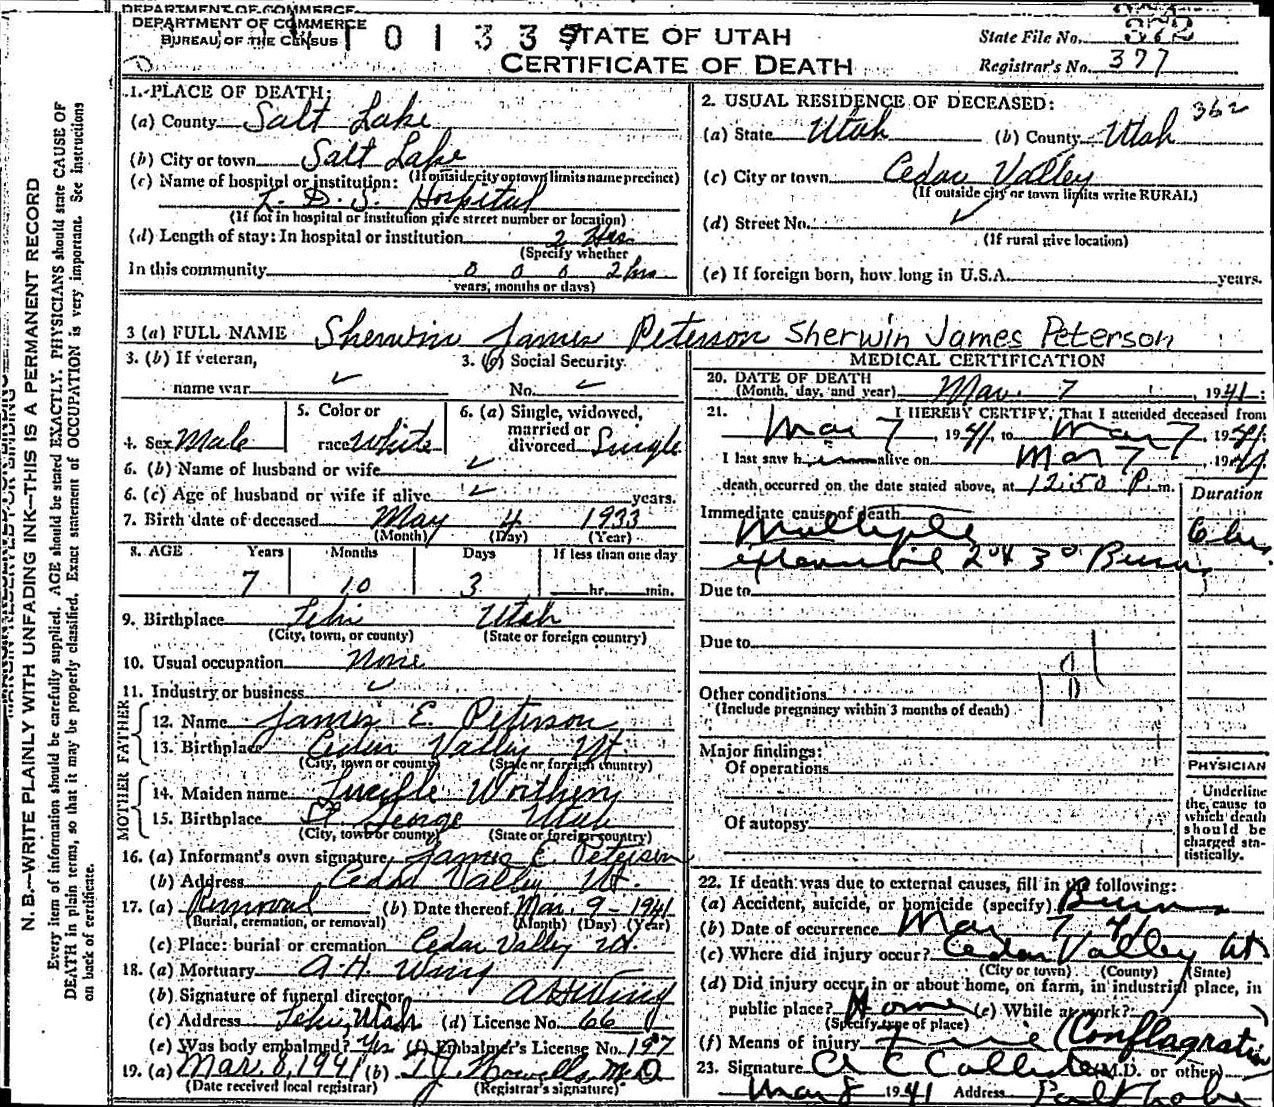 DEPARTMENT OF COMMERCE
DEPARTMENT OF COMMERCE
BUREAU OF THE CENSUS
0 1 3 3 7
STATE OF UTAH
CERTIFICATE OF DEATH
State File No. 372
Registrar's No. 377
N. B.—WRITE PLAINLY WITH UNFADING INK—THIS IS A PERMANENT RECORD
Every item of information should be carefully supplied. AGE should be stated EXACTLY. PHYSICIANS should state CAUSE OF
DEATH in plain terms, so that it may be properly classified. Exact statement of OCCUPATION is very important. See instructions
on back of certificate.
1. PLACE OF DEATH:
(a) County Salt Lake
(b) City or town Salt Lake
(If outside city or town limits name precinct)
(c) Name of hospital or institution:
L. D. S. Hospital
(If not in hospital or institution give street number or location)
(d) Length of stay: In hospital or institution 2 Hrs
(Specify whether
In this community 0 0 0 2 hrs
years, months or days)
2. USUAL RESIDENCE OF DECEASED:
362
(a) State Utah (b) County Utah
(c) City or town Cedar Valley
(If outside city or town limits write RURAL)
(d) Street No. ✓
(If rural give location)
(e) If foreign born, how long in U.S.A. years.
3 (a) FULL NAME Sherwin James Peterson Sherwin James Peterson
3. (b) If veteran,
name war ✓
3. (c) Social Security
No. ✓
4. Sex Male
5. Color or
race White
6. (a) Single, widowed,
married or
divorced Single
6. (b) Name of husband or wife ✓
6. (c) Age of husband or wife if alive ✓ years.
7. Birth date of deceased May 4 1933
(Month) (Day) (Year)
8. AGE Years Months Days If less than one day
7 10 3 hr. min.
9. Birthplace Lehi Utah
(City, town, or county) (State or foreign country)
10. Usual occupation None
11. Industry or business ✓
FATHER
12. Name James E. Peterson
13. Birthplace Cedar Valley Ut.
(City, town or county) (State or foreign country)
MOTHER
14. Maiden name Lucille Worthen
15. Birthplace St George Utah
(City, town or county) (State or foreign country)
16. (a) Informant's own signature James E. Peterson
(b) Address Cedar Valley Ut.
17. (a) Removal (b) Date thereof Mar. 9-1941
(Burial, cremation, or removal) (Month) (Day) (Year)
(c) Place: burial or cremation Cedar Valley Ut.
18. (a) Mortuary A. H. Wing
(b) Signature of funeral director A H Wing
(c) Address Lehi, Utah (d) License No. 66
(e) Was body embalmed? Yes (f) Embalmer's License No. 197
19. (a) Mar. 8, 1941 (b) M.D.
(Date received local registrar) (Registrar's signature)
MEDICAL CERTIFICATION
20. DATE OF DEATH
(Month, day, and year) Mar. 7, 1941:
21. I HEREBY CERTIFY, That I attended deceased from
Mar 7, 1941, to Mar 7, 1941.
I last saw him alive on Mar 7, 1941
death occurred on the date stated above, at 12:50 P. m.
Duration
Immediate cause of death
Multiple 6 hrs
extensive 2° & 3° Burns
Due to
Due to
Other conditions
(Include pregnancy within 3 months of death)
Major findings:
Of operations
Of autopsy
PHYSICIAN
Underline
the cause to
which death
should be
charged sta-
tistically.
22. If death was due to external causes, fill in the following:
(a) Accident, suicide, or homicide (specify) Burns
(b) Date of occurrence Mar 7 41
(c) Where did injury occur? Cedar Valley Ut
(City or town) (County) (State)
(d) Did injury occur in or about home, on farm, in industrial place, in
public place? Home (e) While at work?
(Specify type of place)
(f) Means of injury Fire (Conflagration)
23. Signature (M.D. or other)
Mar 8 1941 Address Salt Lake